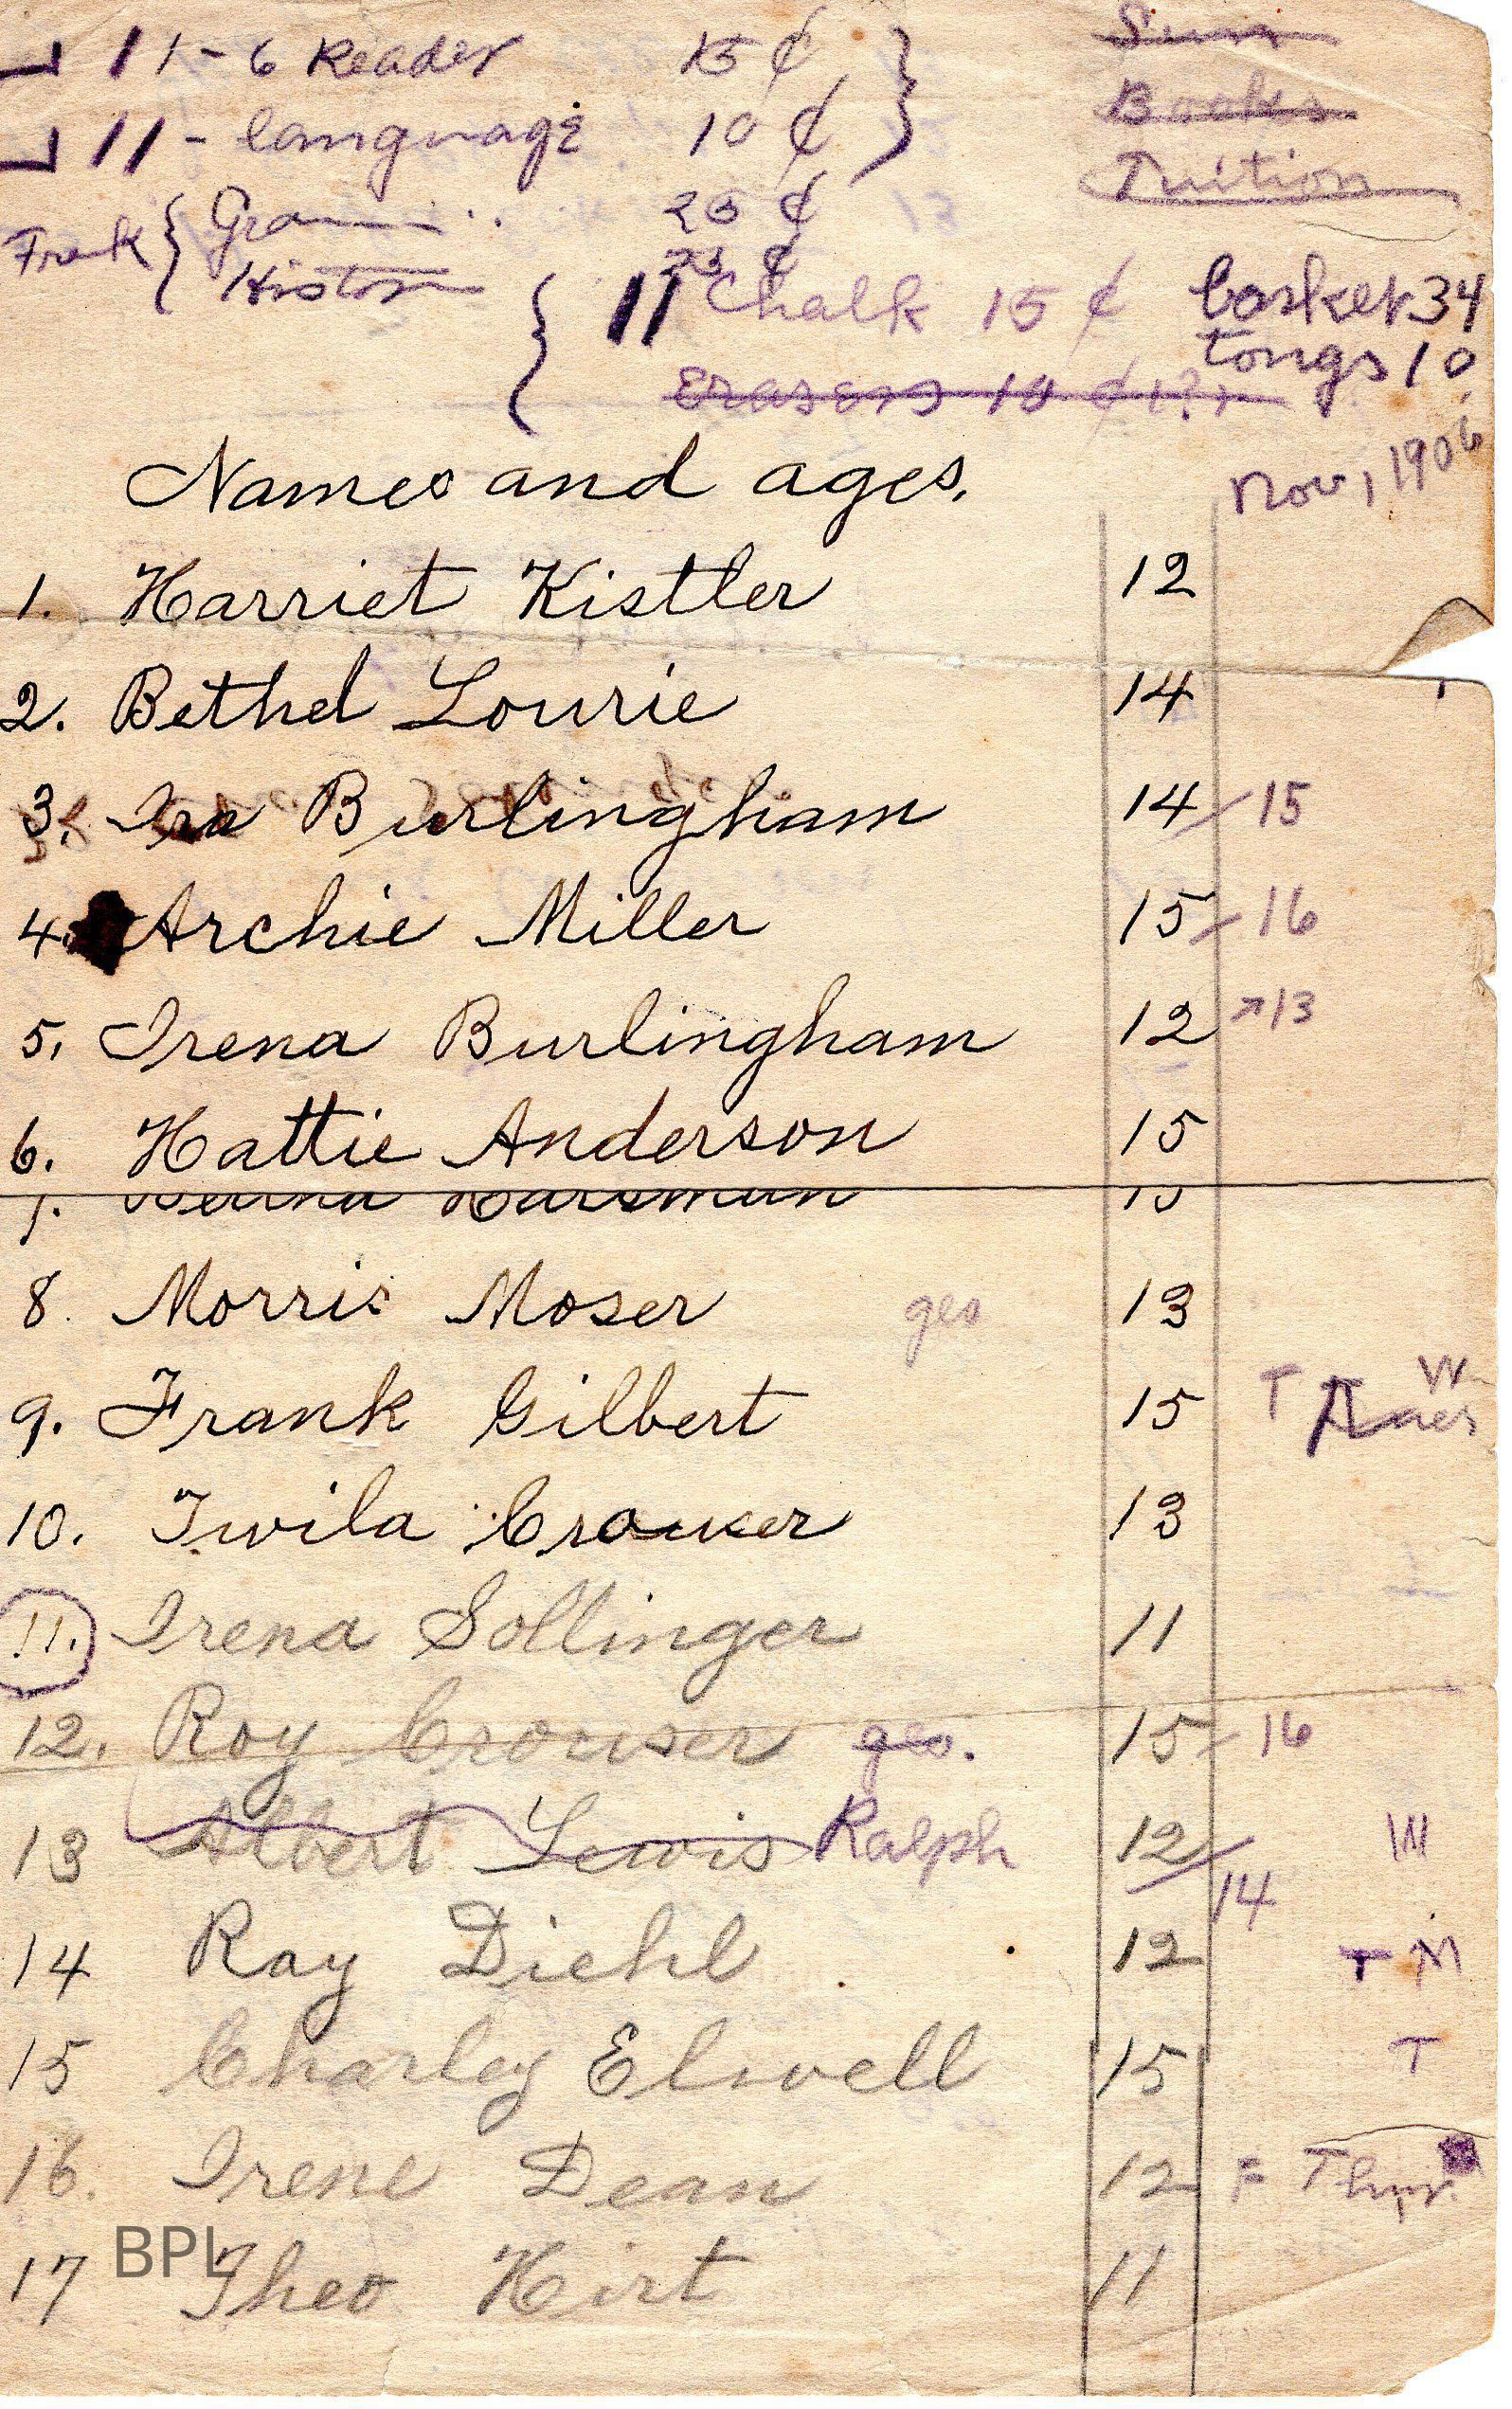 11 1-6 Reader 15 ¢
11 - language 10 ¢
Sums
Books
Tuition
Gram 25 ¢
Frank
Histor ¢
11 Chalk 15 ¢
basket 34
tongs 10
Erasers 10 ¢ (?)
Names and ages.
Nov, 1906
1. Harriet Kistler 12
2. Bethel Lourie 14
3. Ira Burlingham 14 / 15
4. Archie Miller 15 - 16
5. Irena Burlingham 12 ↗ 13
6. Hattie Anderson 15
7. 15
8. Morris Moser geo 13
9. Frank Gilbert 15 T W
10. Twila Crouser 13
11. Irena Sollinger 11
12. Roy Crouser geo. 15 - 16
13 Albert Lewis Ralph 12 / 14 W
14 Ray Diehl 12 T M
15 Charley Elwell 15 T
16. Irene Dean 12 F
17 Theo Hirt 11
BPL